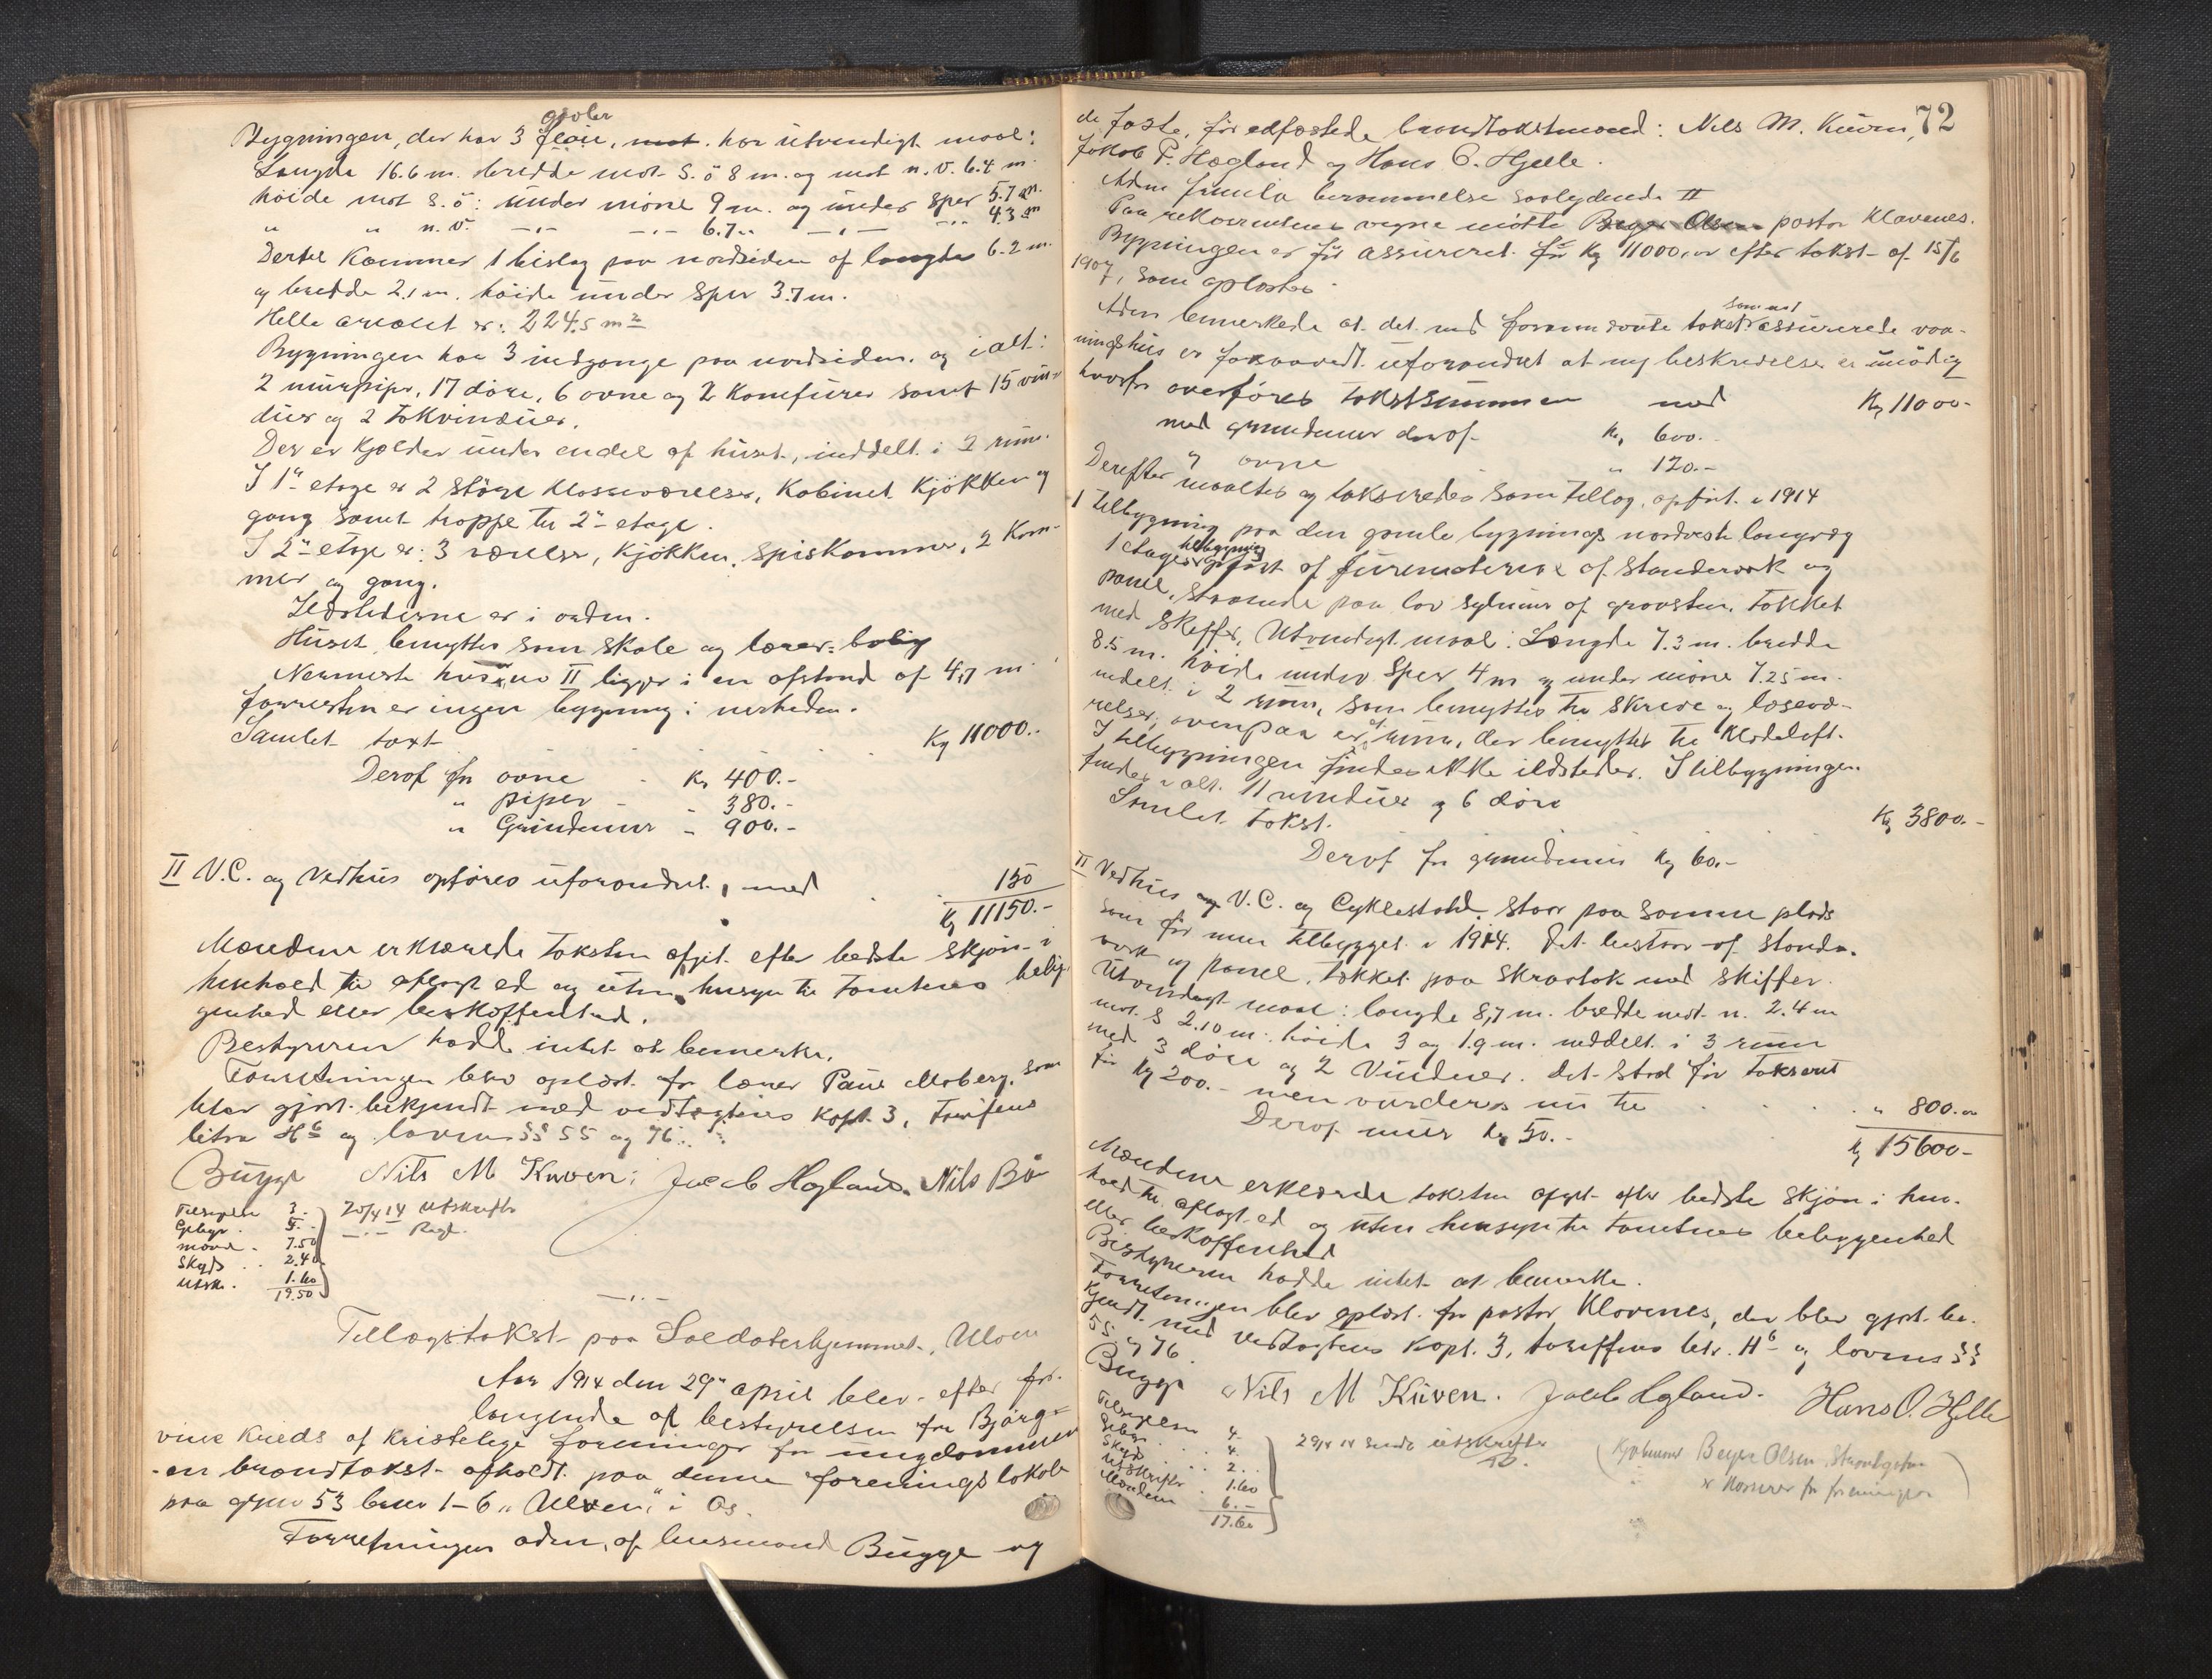 gavler
Bygningen, der har 3 flöie, mot. har utvendigt maal:
Længde 16.6 m. bredde mot S.ö 8 m. og mot n.v. 6.4 m.
höide mot S.ö: under möne 9 m. og under sper 5.7 m.
" " n.v. -"- -"- 6.7 " -"- -"- 4.3 m
Dertil kommer 1 bislag paa nordsiden af længde 6.2 m.
og bredde 2.1 m. höide under sper 3.7 m.
Hele arealet er: 224.5 m2
Bygningen har 3 indgange paa nordsiden. og ialt:
2 murpiper, 17 döre, 6 ovne og 2 komfurer samt 15 vin-
duer og 2 takvinduer.
Der er kjelder under endel af huset, inddelt i 2 rum.
I 1ste etage er 2 större klasseværelser, kabinet kjökken og
gang samt trappe til 2den etage.
I 2den etage er: 3 værelser, kjökken, spiskammer, 2 kam-
mer og gang.
Ildstederne er i orden.
Huset benyttes som skole og lærer-bolig
Nærmeste hus no II ligger i en afstand af 4,7 m
forresten er ingen bygning i nærheden.
Samlet taxt Kr 11000.-
Deraf for ovne - Kr 400.-
" piper - - 380.-
" Grundmur - 900.-
II V.C. og Vedhus opföres uforandret, med 150
Kr 11150.-
Mændene erklærede taksten afgit efter bedste skjön i
henhold til aflagt ed og uten hensyn til tomtenes belig-
genhed eller beskaffenhed.
Bestyreren hadde intet at bemerke.
Forretningen blev oplæst for lærer Paul Moberg, som
blev gjort bekjendt med vedtægtenes kapt. 3, tarifens
litra H6 og lovens §§ 55 og 76.
Bugge Nils M Kuven; Jacob Hagland. Nils Bö
Tilsigelse 3.- 20/4 14 utskrift
Gebyr. 5.- -"- Regd.
mænd - 7.50
Skyds .. 2.40
Utskr. 1.60
19.50
-"-
Tillægstakst paa Soldaterhjemmet, Ulven
Aar 1914 den 29de april blev efter for-
langende af bestyrelsen for Björg-
vins kreds af kristelige foreninger for ungdommen
- en brandtakst afholdt paa denne forenings lokale
paa gnr 53 bnr 1-6 "Ulven" i Os.
Forretningen adm. af lensmand Bugge og
72
de faste, för edfæstede brandtakstmænd: Nils M. Kuven,
Jakob P. Hagland og Hans O. Hjelle.
Adm fremla berammelse saalydende II
Paa rekvirentens vegne mötte Beyer Olsen pastor Klavenes.
Bygningen er för assureret for Kr 11000,00 efter takst af 15/6
1907, som oplæstes.
samme
Adm bemerkede at det ved foran nævnte takst assurerede vaa-
ningshus er forsaavidt uforandret at ny beskrivelse er unödig
hvorfor overföres takstsummen med Kr 11000-
med grundmur deraf Kr, 600.-
" ovne " 120.-
Derefter maaltes og takseredes som tillæg, opfört i 1914
1 tilbygning paa den gamle bygnings nordvestre langvæg
tilbygning
1 etages opfört af furumateriale af stenderverk og
panel, staaende paa lav sylmur af graasten, tækket
med skiffer. Utvendigt maal: Længde 7.3 m. bredde
8.5 m. höide under sper 4 m og under möne 7.25 m.
inddelt i 2 rum, som benyttes til skrive og læsevæ-
relser; ovenpaa er et rum, der benyttes til klædeloft.
I tilbygningen findes ikke ildsteder. I tilbygningen
findes i alt. 11 vinduer og 6 döre
Samlet takst. Kr 3800.-
Deraf for grundmur Kr 60.-
II Vedhus og V.C. og Cyklestald, staar paa samme plads
som för men tilbygget i 1914. Det bestaar af stender-
verk og panel, tækket paa skraatak med skiffer.
Utvendigt maal: længde 8,7 m. bredde mot n. 2.4 m
mot S 2.10 m. höide 3 og 1.9 m. inddelt i 3 rum
med 3 döre og 2 Vinduer. Det stod för takseret
for Kr 200.- men vurderes nu til " 800.00
Deraf mur Kr 50.-
Kr 15600-
Mændene erklærede taksten afgit efter bedste skjön i hen-
hold til aflagt ed og uten hensyn til tomtenes beliggenhed
eller beskaffenhed
Bestyreren hadde intet at bemerke.
Forretningen blev oplæst for pastor Klavenes, der blev gjort be-
kjendt med vedtægtens kapt. 3, tariffens litr. H6 og lovens §§
55 og 76.
Bugge Nils M Kuven. Jacob Hgland. Hans O. Hjelle
Tilsigelse 4.
Gebyr . . 4. 29/4 14 sendt utskrifter
Skyds . . 2.. (Kjöbmand Beyer Olsen, Strandgaten
Utskrifter . 1.60 er kasserer for foreningen)
Mændene 6.-
17.60